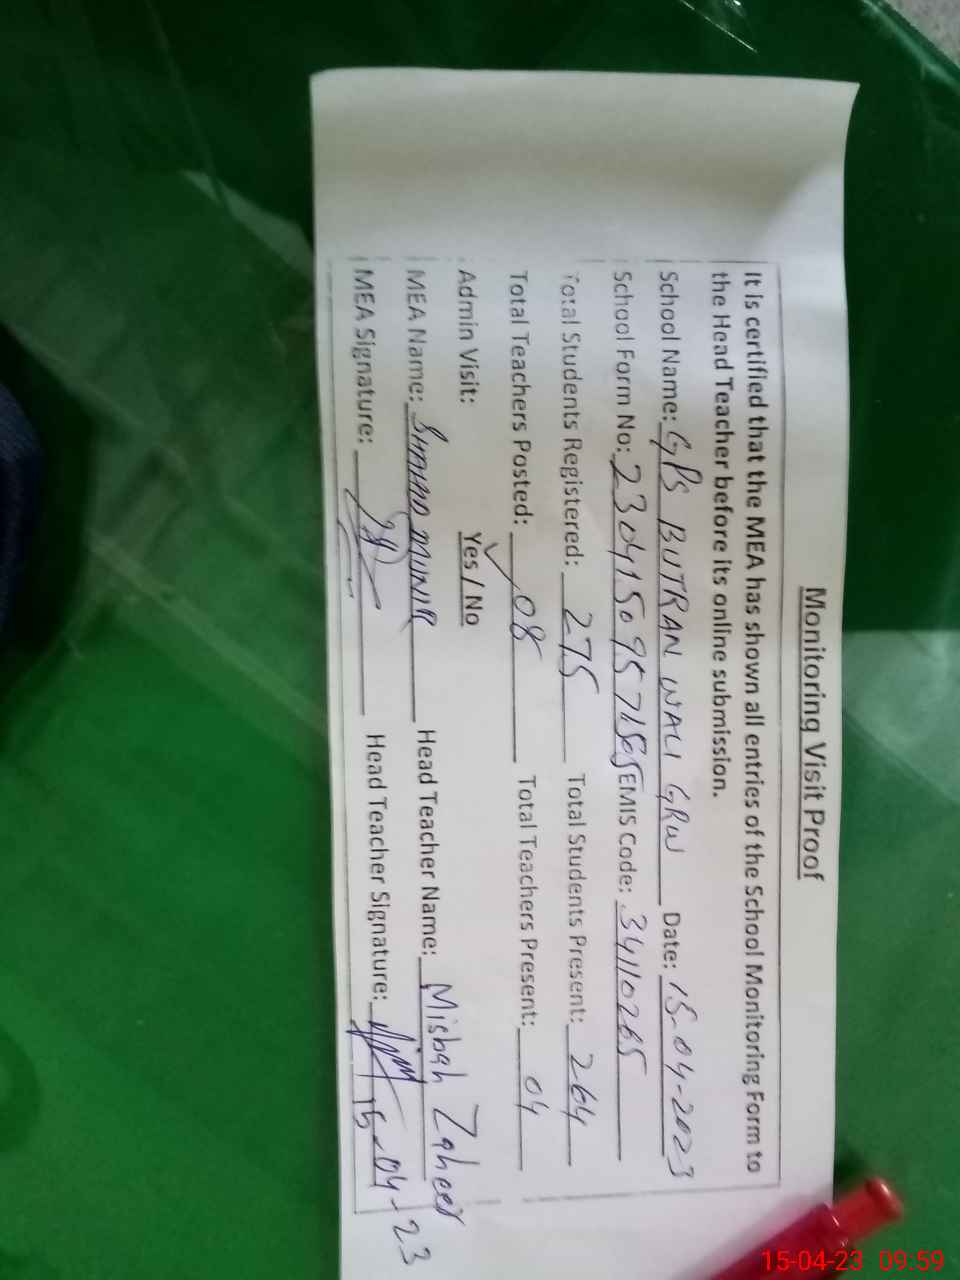 Monitoring Visit Proof
It is certified that the MEA has shown all entries of the School Monitoring Form to
the Head Teacher before its online submission.
School Name: GPS BUTRAN WALI GRW Date: 15-04-2023
School Form No: EMIS Code: 34110265
Total Students Registered: 275 Total Students Present: 264
Total Teachers Posted: 08 Total Teachers Present: 04
Admin Visit: Yes / No
MEA Name: MUNIR Head Teacher Name: Misbah Zaheer
MEA Signature: Head Teacher Signature: 15-04-23
15-04-23 09:59